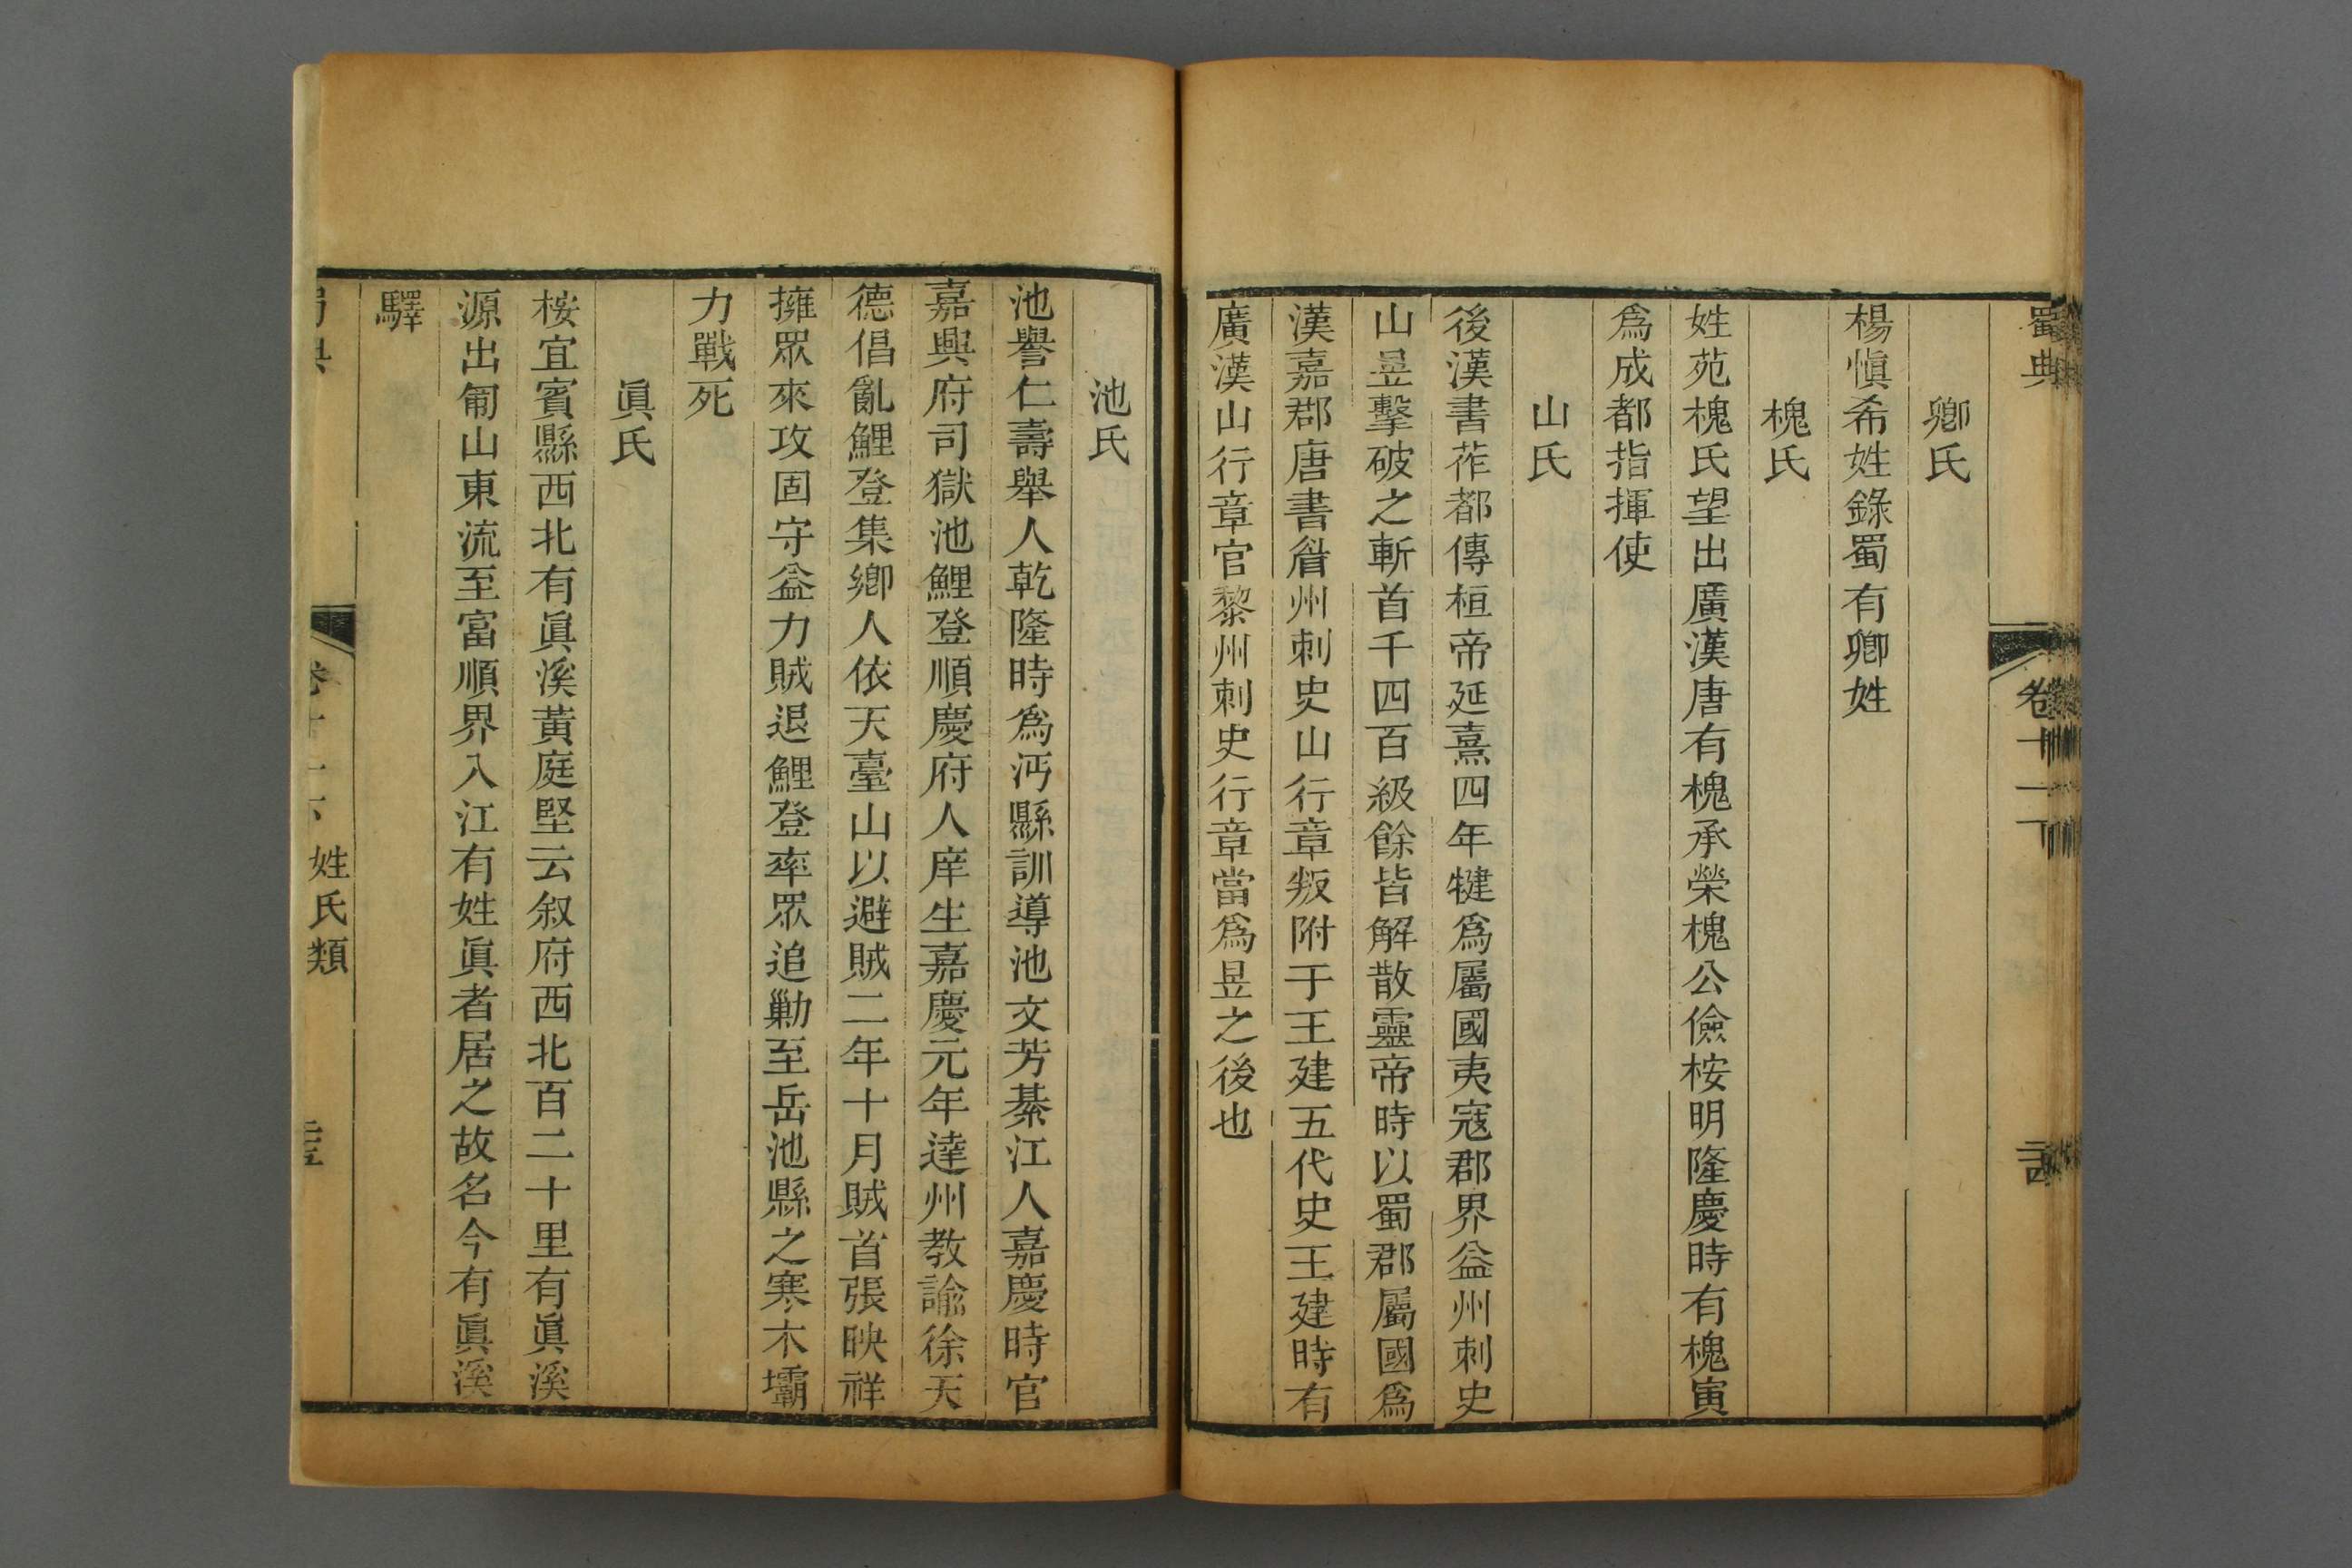 蜀典
卷十一下
卿氏
楊愼希姓錄蜀有卿姓
槐氏
姓苑槐氏望出廣漢唐有槐承榮槐公儉桉明隆慶時有槐寅
爲成都指揮使
山氏
後漢書莋都傳桓帝延熹四年犍爲屬國夷寇郡界益州刺史
山昱擊破之斬首千四百級餘皆解散靈帝時以蜀郡屬國爲
漢嘉郡唐書眉州刺史山行章叛附于王建五代史王建時有
廣漢山行章官黎州刺史行章當爲昱之後也
池氏
池譽仁壽舉人乾隆時爲沔縣訓導池文芳綦江人嘉慶時官
嘉興府司獄池鯉登順慶府人庠生嘉慶元年達州教諭徐天
德倡亂鯉登集鄉人依天臺山以避賊二年十月賊首張映祥
擁眾來攻固守益力賊退鯉登率眾追勦至岳池縣之寒木壩
力戰死
眞氏
桉宜賓縣西北有眞溪黃庭堅云叙府西北百二十里有眞溪
源出匍山東流至富順界入江有姓眞者居之故名今有眞溪
驛
姓氏類